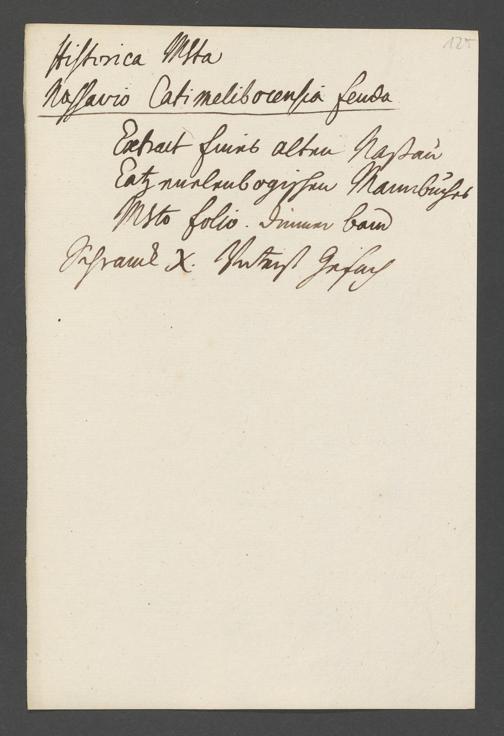 125
Historica Msta
Nassavio Catimelibocensia feuda
Extrait eines alten Naßau
Catzenelenbogischen Mannbuches
Msto folio. dünner band
Schrank X. Unterst Gefach